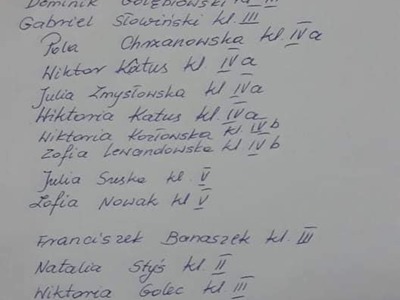 Dominik Gołębiowski kl. III
Gabriel Słowiński kl. III
Pola Chrzanowska kl. IV a
Wiktor Katus kl. IV a
Julia Zmysłowska kl. IV a
Wiktoria Katus kl. IV a
Wiktoria Kozłowska kl. IV b
Zofia Lewandowska kl IV b
Julia Suska kl. V
Zofia Nowak kl. V
Franciszek Banaszek kl. III
Natalia Styś kl. II
Wiktoria Golec kl. III